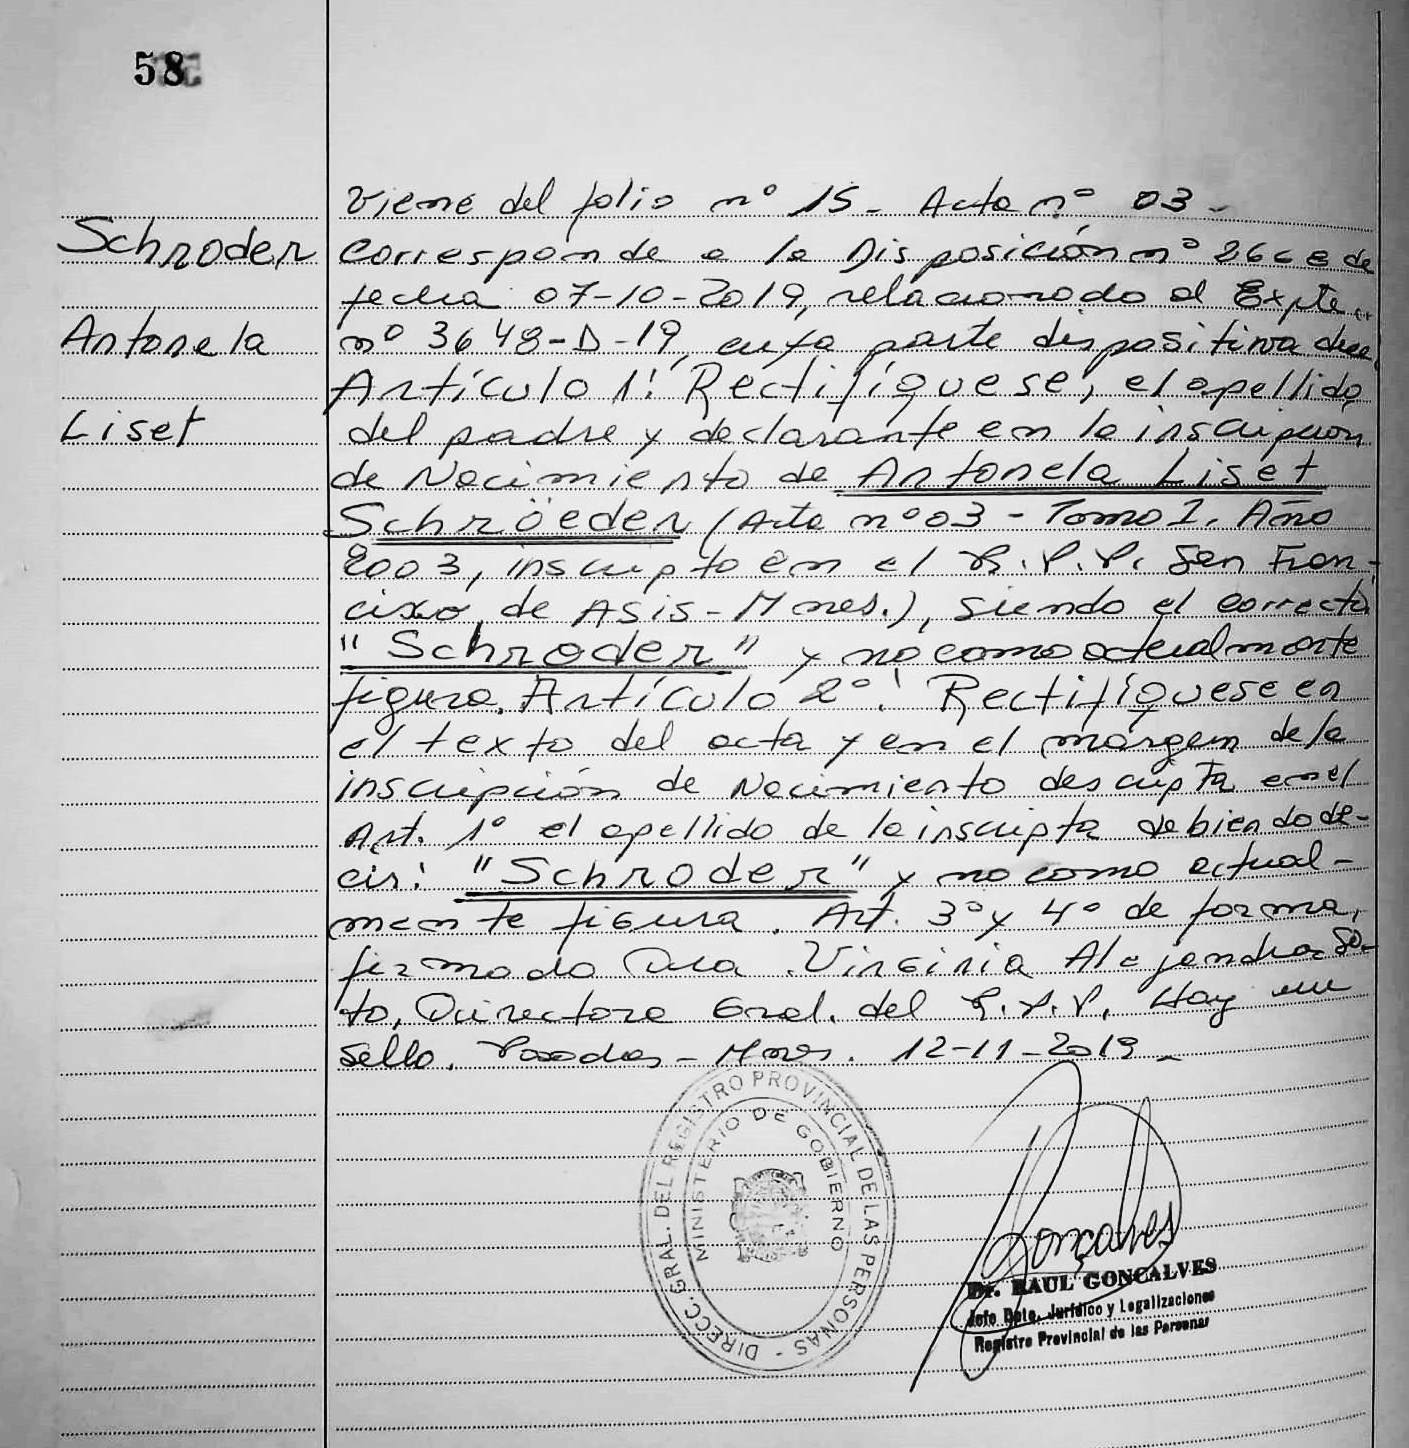 58
Schroder
Antonela
Liset
Viene del folio nº 15 - Acta nº 03 -
Corresponde a la Disposición nº
fecha 07-10-2019, relacionado al Expte.
nº 3648-D-19, cuya parte dispositiva dice
Artículo 1: Rectifíquese, el apellido
del padre y declarante en la inscripción
de Nacimiento de Antonela Liset
Schröeder (Acta nº 03 - Tomo I. Año
2003, inscripto en el R.P.P. San Fran-
cisco de Asis - Mnes.), siendo el correcto
"Schroder" y no como actualmente
figura. Artículo 2º: Rectifíquese en
el texto del acta y en el márgen de la
inscripción de Nacimiento descripta en el
Art. 1º el apellido de la inscripta debiendo de-
cir: "Schroder" y no como actual-
mente figura. Art. 3º y 4º de forma,
firmado Dra. Virginia Alejandra So-
to, Directora Gral. del R.P.P. Hay un
sello. Posadas - Mnes. 12-11-2019 -
DIRECC. GRAL. DEL REGISTRO PROVINCIAL DE LAS PERSONAS -
MINISTERIO DE GOBIERNO
Gonçalves
Dr. RAUL GONCALVES
Jefe Dpto. Jurídico y Legalizaciones
Registro Provincial de las Personas